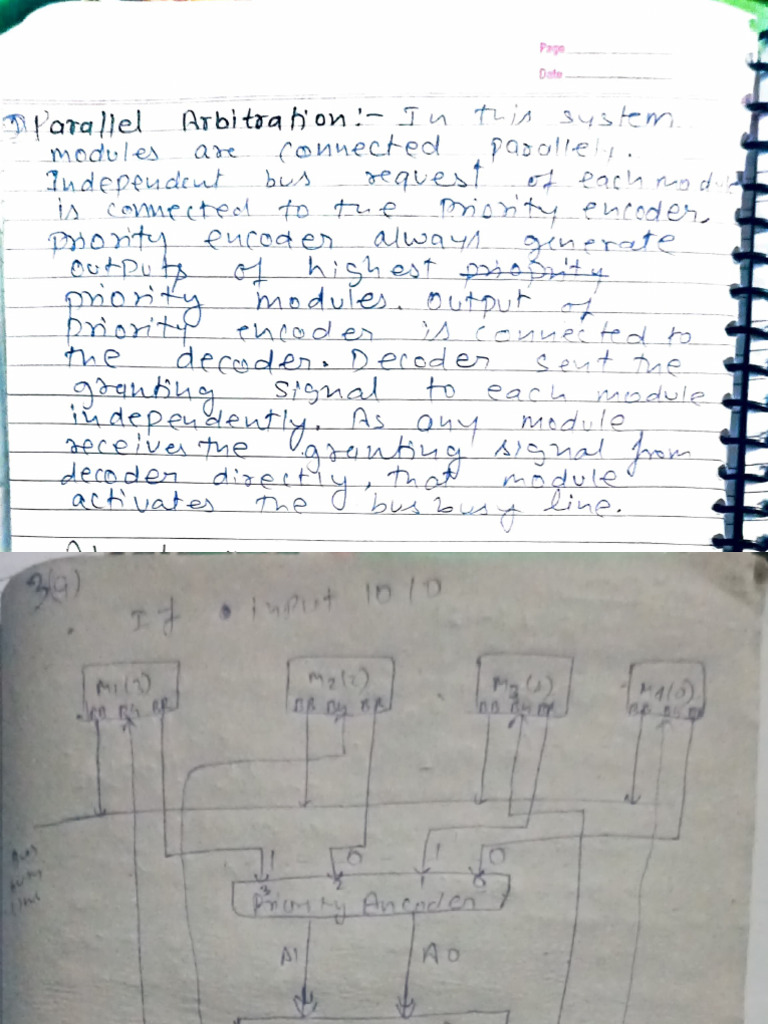 Page
Date
Parallel Arbitration:- In this system
modules are connected parallely.
Independent bus request of each module
is connected to the priority encoder.
priority encoder always generate
outputs of highest priopity
priority modules. output of
priority encoder is connected to
the decoder. Decoder sent the
granting signal to each module
independently. As any module
receives the granting signal from
decoder directly, that module
activates the bus busy line.
3(a)
If input 1010
M1(3) M2(2) M3(1) M4(0)
BB BG BR BB BG BR BB BG BR BB BG BR
1 0 1 0
Bus
busy
line
3 2 1 0
Priority Encoder
A1 A0